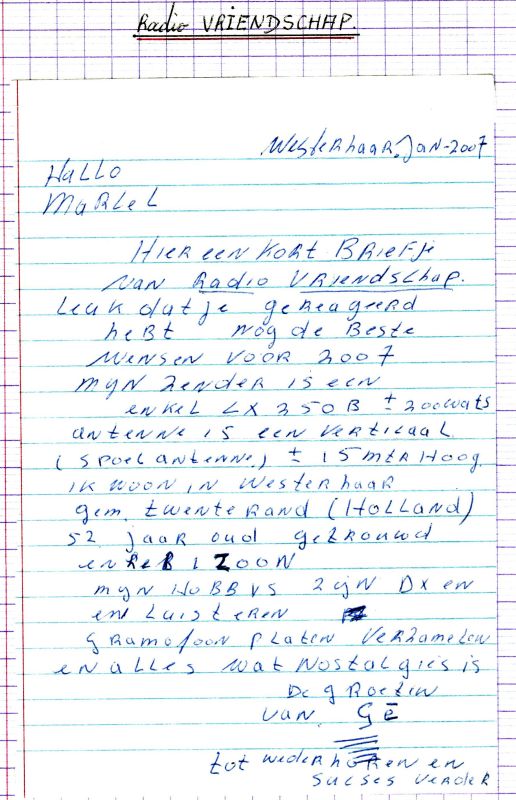 Radio VRIENDSCHAP.
Westerhaar. JAN-2007
HALLO
MARCEL
HIER EEN KORT BRIEFje
VAN Radio VRIENDSCHAP.
Leuk dat je gereageerd
hebt nog de Beste
Wensen voor 2007
MyN Zender is een
enkel LX 250B ± 200 wats
antenne is een verticaal
(spoel antenne,) ± 15 mtr Hoog
ik woon in Westerhaar
gem. Twenterand (HOLLAND)
52 jaar oud getrouwd
en heb 1 ZOON
mijn HoBBys zijn Dx en
en Luisteren
gramofoon platen Verzamelen
en alles wat Nostalgies is
De groeten
van. Gē
tot wederhoren en
sucses verder